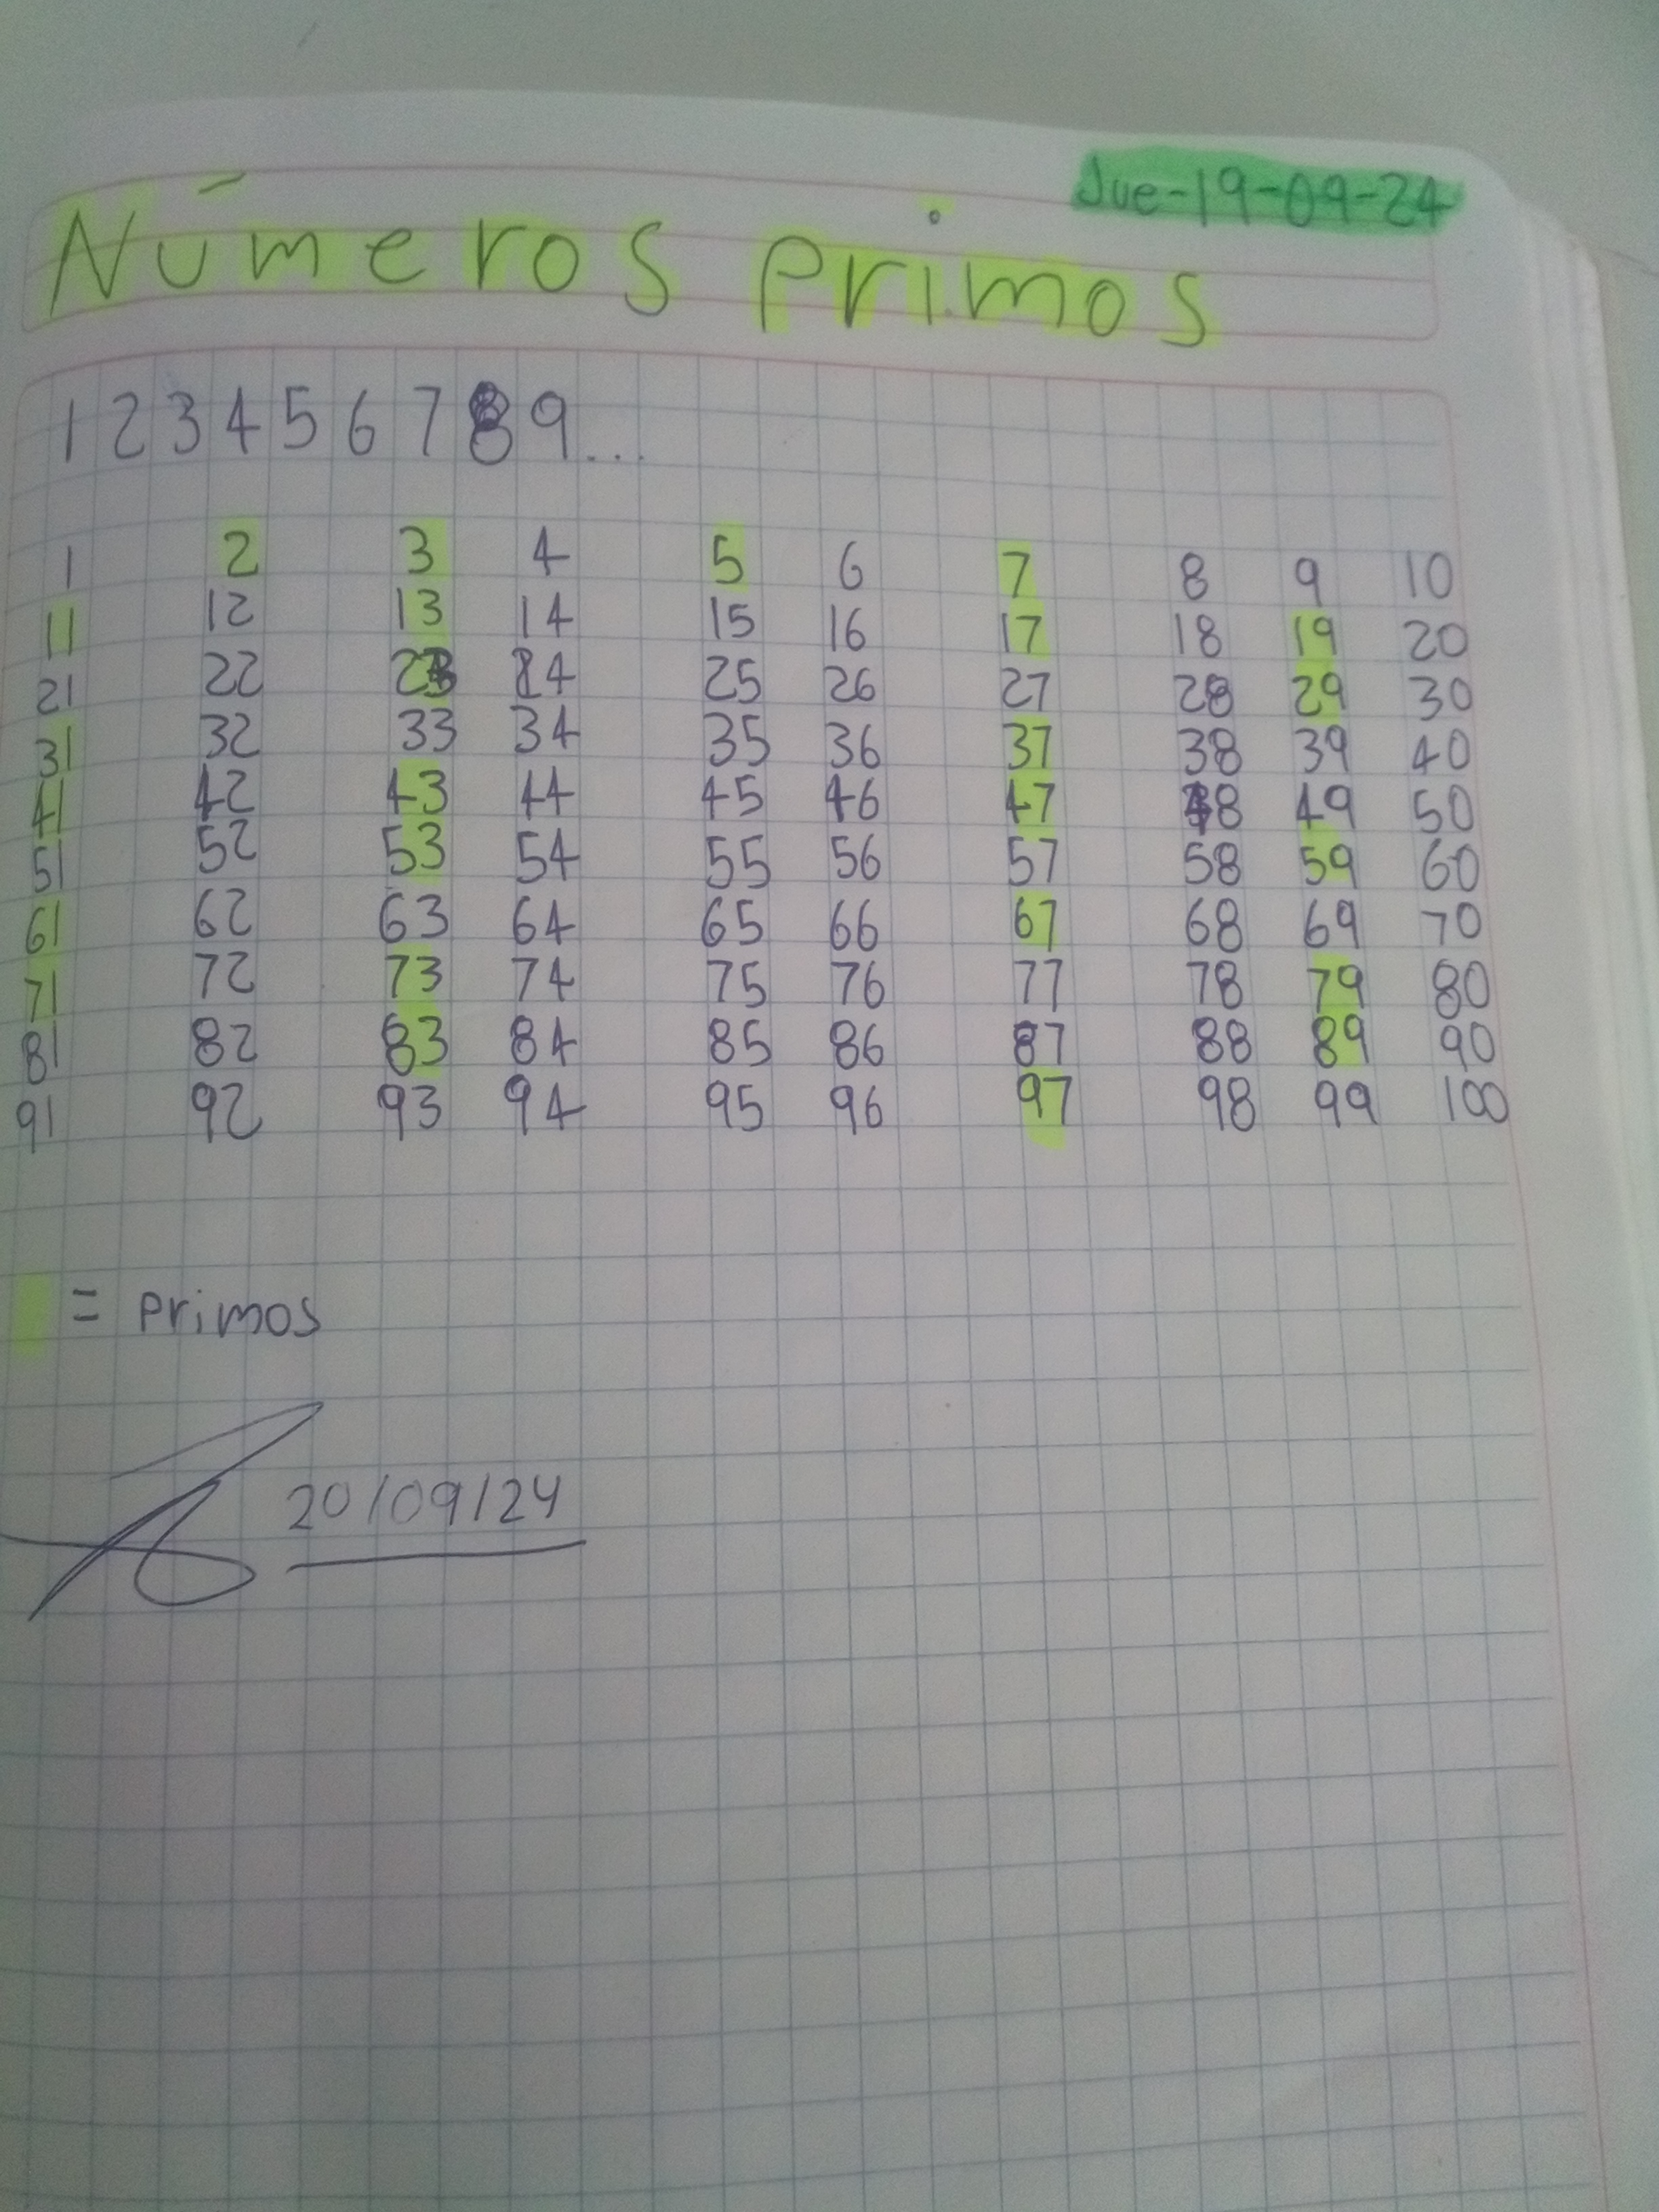 Jue-19-09-24
Números primos
1 2 3 4 5 6 7 8 9...
1 2 3 4 5 6 7 8 9 10
11 12 13 14 15 16 17 18 19 20
21 22 23 24 25 26 27 28 29 30
31 32 33 34 35 36 37 38 39 40
41 42 43 44 45 46 47 48 49 50
51 52 53 54 55 56 57 58 59 60
61 62 63 64 65 66 67 68 69 70
71 72 73 74 75 76 77 78 79 80
81 82 83 84 85 86 87 88 89 90
91 92 93 94 95 96 97 98 99 100
= primos
20/09/24